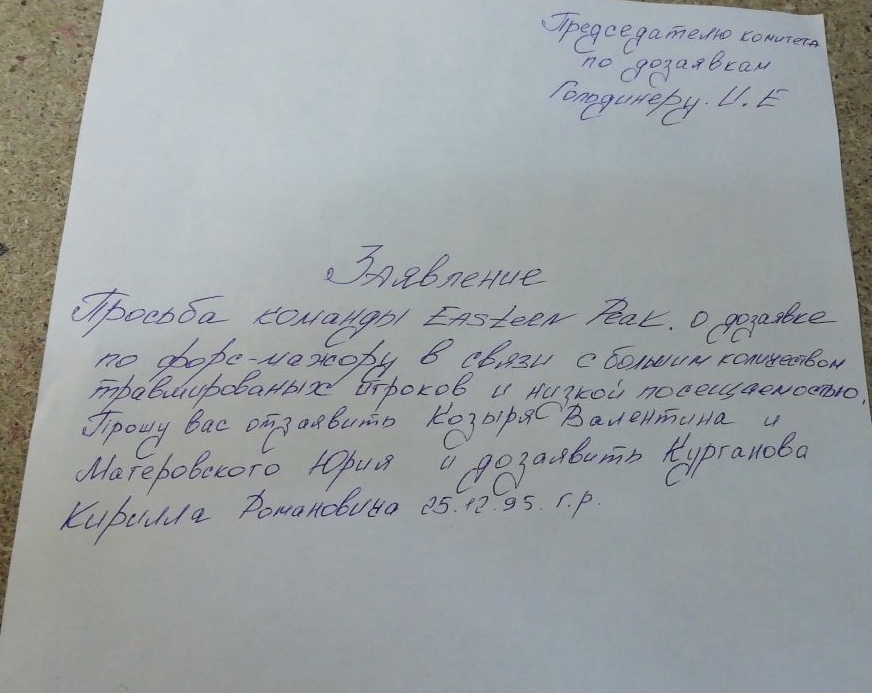 Председателю комитета
по дозаявкам
Голодинеру. И. Е
Заявление
Просьба команды Easteen Peak. о дозаявке
по форс-мажору в связи с большим количеством
травмированых игроков и низкой посещаемостью.
Прошу вас отзаявить Козыря Валентина и
Матеровского Юрия и дозаявить Курганова
Кирилла Романовича 25.12.95. г.р.